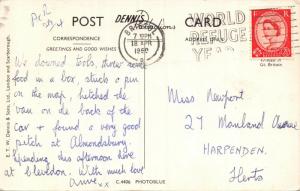 POST DENNIS Productions CARD
CORRESPONDENCE
ADDRESS ONLY
GREETINGS AND GOOD WISHES
7 PM
18 APR
1960
WORLD
REFUGEE
YEAR
We downed tools, threw some
food in a box, stuck a pin
on the map, hitched the
van on the back of the
car & found a very good
pitch at Almondsbury.
Spending this afternoon here
at Clevedon. With much love
Anne xx
Miss Newport
27
HARPENDEN.
Herts
E. T. W. Dennis & Sons Ltd., London and Scarborough.
Printed in
Gt. Britain
C.4406 PHOTOBLUE